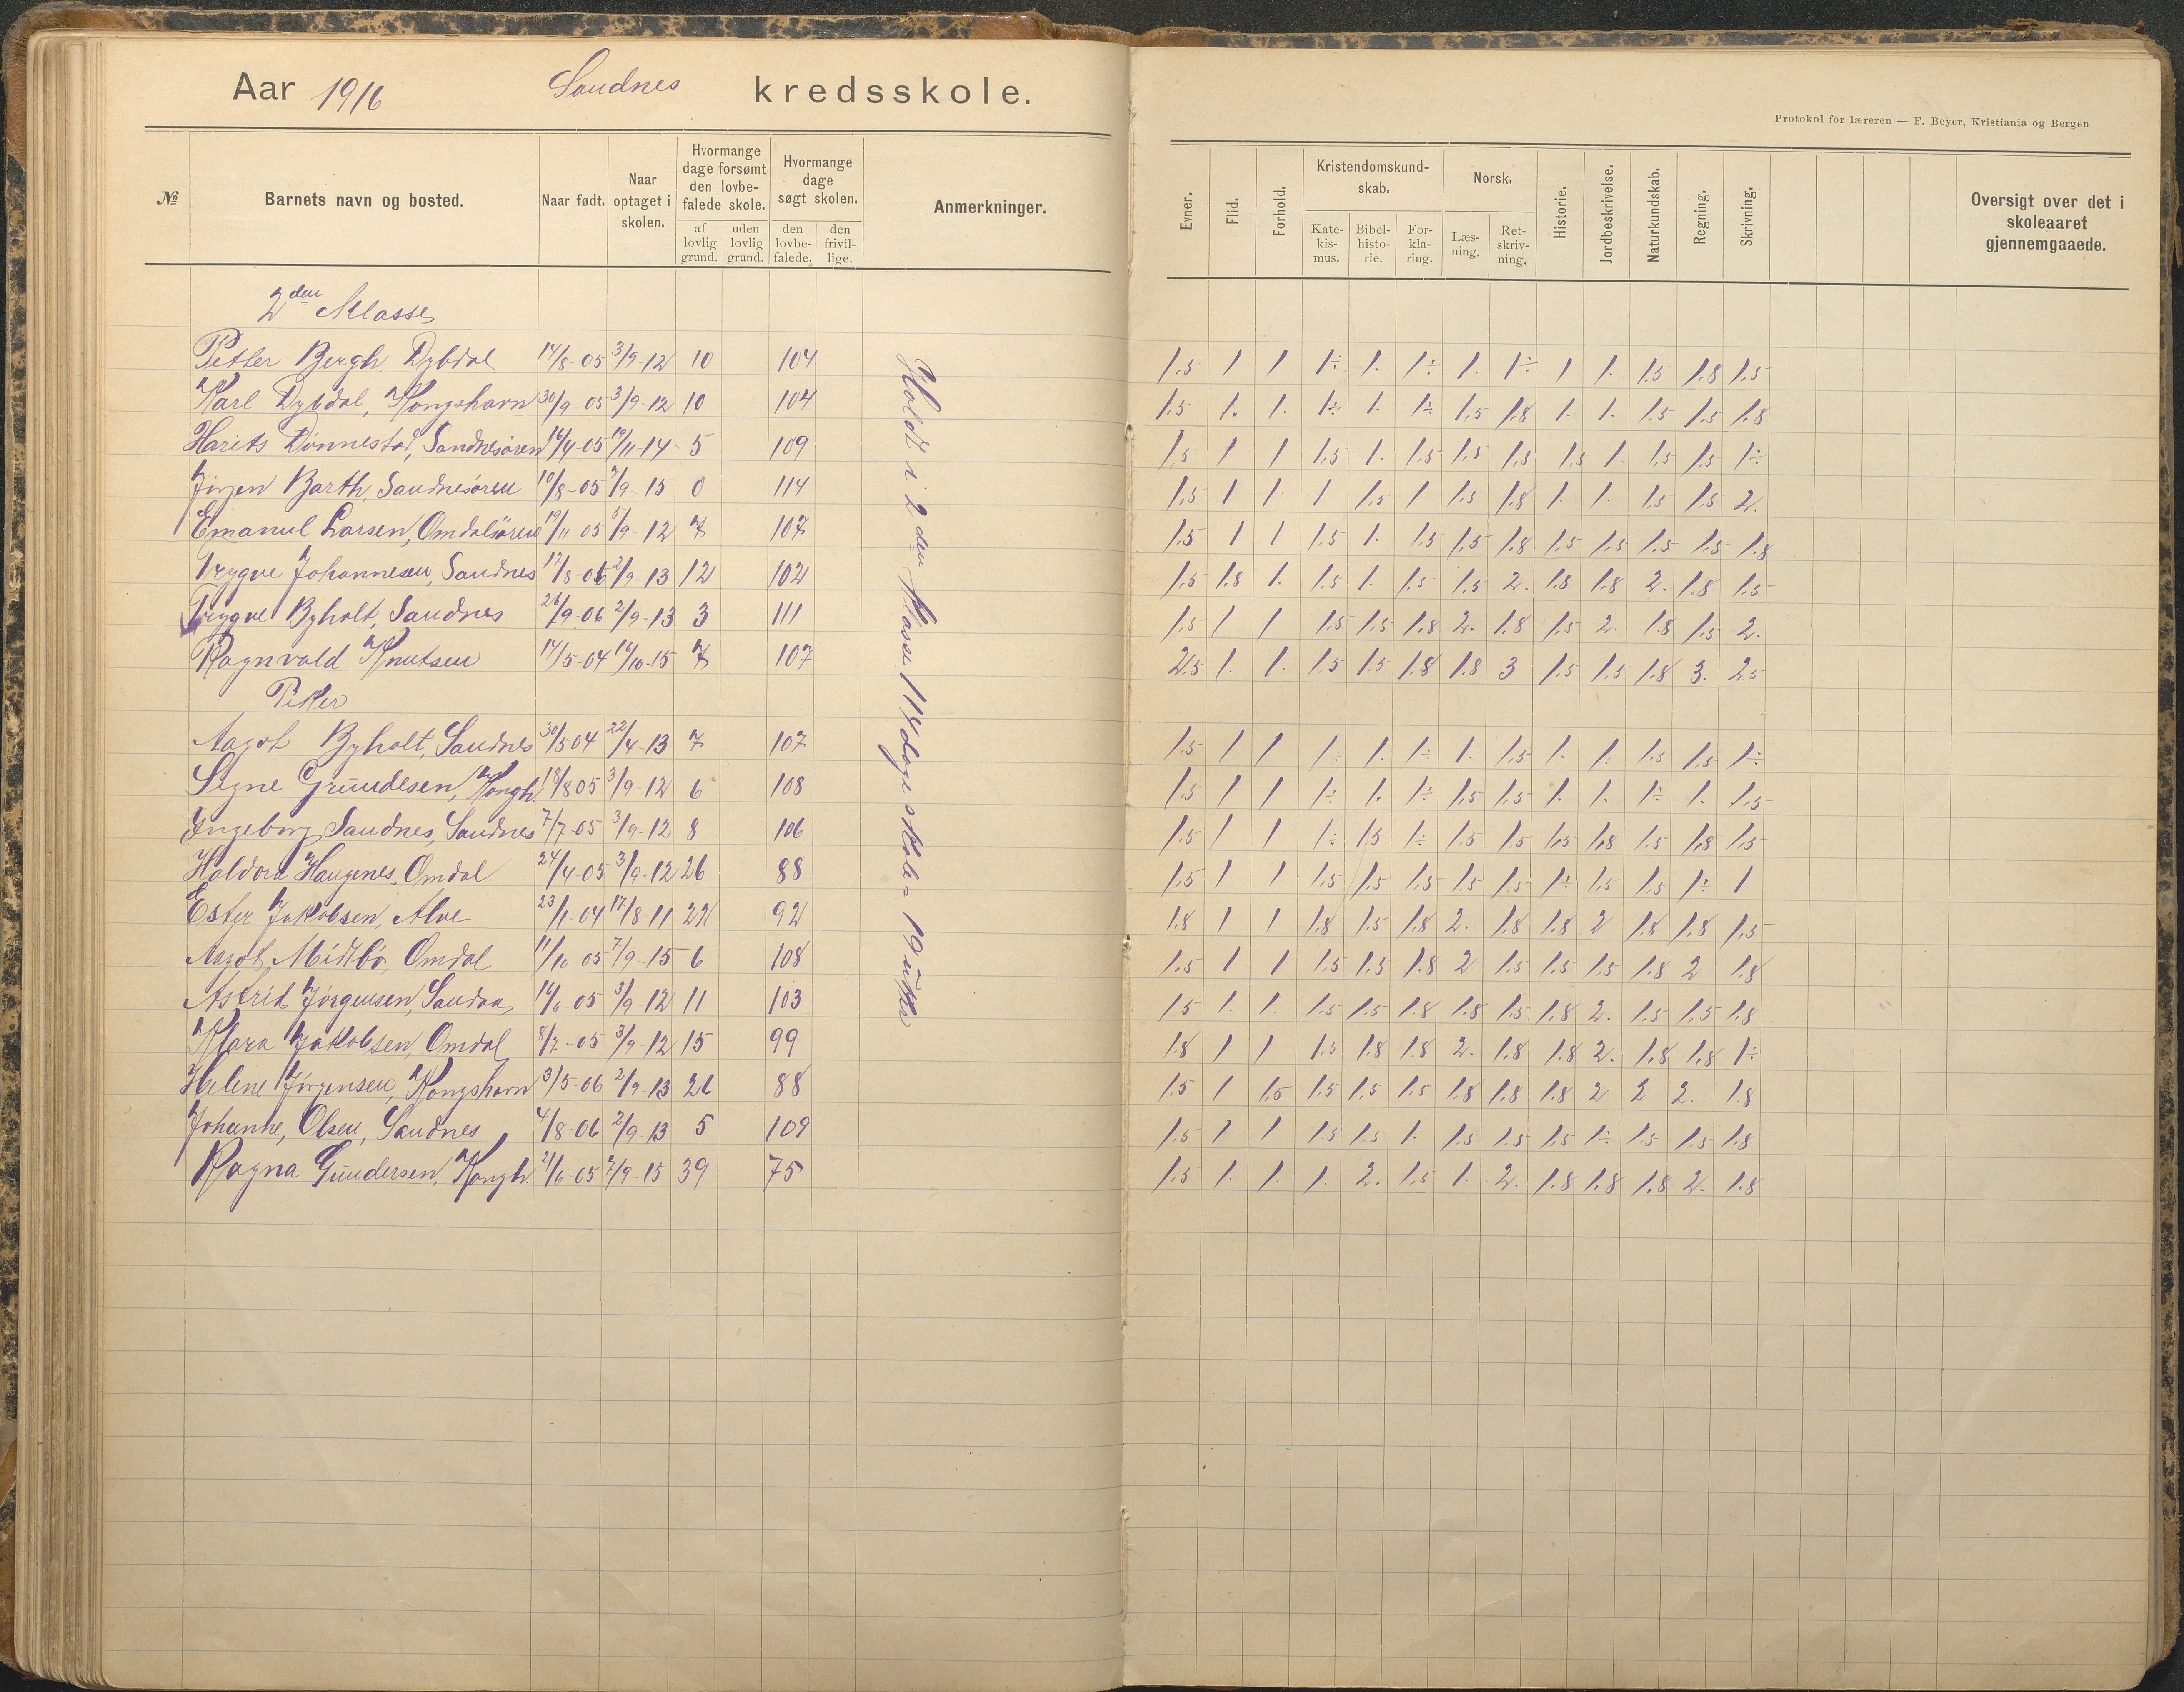 Aar 1916 Sandnes kredsskole.
Protokol for læreren — F. Beyer, Kristiania og Bergen
№ Barnets navn og bosted. Naar født. Naar optaget i skolen. Hvormange dage forsømt den lovbefalede skole. af lovlig grund. uden lovlig grund. Hvormange dage søgt skolen. den lovbefalede. den frivillige. Anmerkninger. Evner. Flid. Forhold. Kristendomskundskab. Katekismus. Bibelhistorie. Forklaring. Norsk. Læsning. Retskrivning. Historie. Jordbeskrivelse. Naturkundskab. Regning. Skrivning. Oversigt over det i skoleaaret gjennemgaaede.
2den Klasse
Petter Bergh Dybdal 14/8-05 3/9-12 10 104 1,5 1 1 1÷ 1. 1÷ 1. 1÷ 1 1. 1.5 1.8 1.5
Karl Dybdal, Kongshavn 30/9-05 3/9-12 10 104 1.5 1. 1. 1÷ 1. 1÷ 1,5 1,8 1. 1. 1.5 1,5 1.8
Harets Dønnestad, Sandnesøren 16/4-05 19/11-14 5 109 1,5 1 1 1,5 1. 1.5 1.5 1,5 1.5 1. 1,5 1,5 1÷
Jørgen Barth, Sandnesøren 10/8-05 7/9-15 0 114 1,5 1 1 1 1,5 1 1,5 1,8 1. 1. 1,5 1,5 2.
Emanuel Larsen, Omdalsøren 19/11-05 5/9-12 7 107 1.5 1 1 1.5 1. 1.5 1,5 1,8 1,5 1,5 1,5 1,5 1,8
Trygve Johannesen, Sandnes 17/8-06 2/9-13 12 102 1,5 1.8 1. 1.5 1. 1.5 1.5 2. 1.8 1.8 2. 1.8 1.5
Trygve Byholt, Sandnes 26/9-06 2/9-13 3 111 1,5 1 1 1.5 1.5 1.8 2. 1.8 1,5 2. 1.8 1,5 2.
Ragnvald Knutsen 14/5-04 16/10-15 7 107 2,5 1. 1. 1,5 1.5 1.8 1.8 3 1.5 1.5 1.8 3. 2.5
Piker
Aagot Byholt, Sandnes 30/5 04 22/4-13 7 107 1.5 1 1 1÷ 1. 1÷ 1. 1.5 1. 1. 1.5 1,5 1÷
Signe Grundesen, Kongh. 18/8 05 3/9-12 6 108 1,5 1 1 1÷ 1. 1÷ 1,5 1,5 1. 1. 1÷ 1. 1,5
Ingeborg Sandnes, Sandnes 7/7-05 3/9-12 8 106 1.5 1 1 1÷ 1.5 1÷ 1.5 1.5 1.5 1,8 1.5 1,8 1,5
Haldora Haugenes, Omdal 24/4-05 3/9-12 26 88 1.5 1 1 1.5 1.5 1.5 1.5 1.5 1÷ 1.5 1.5 1÷ 1
Ester Jakobsen, Alve 23/1-04 17/8-11 22 92 1.8 1 1 1.8 1.5 1.8 2. 1.8 1.8 2 1.8 1.8 1,5
Aagot Midtbø, Omdal 11/10-05 7/9-15 6 108 1.5 1 1 1.5 1.5 1.8 2 1.5 1.5 1.5 1.8 2 1.8
Astrid Jörgensen, Sandaa 14/6-05 3/9-12 11 103 1.5 1. 1. 1.5 1.5 1.8 1.8 1.5 1.8 2. 1.5 1.5 1.8
Klara Jakobsen, Omdal 8/7-05 3/9-12 15 99 1.8 1 1 1.5 1.8 1.8 2. 1.8 1.8 2. 1.8 1.8 1÷
Helene Jörgensen, Kongshavn 3/5-06 2/9-13 26 88 1.5 1 1,5 1.5 1.5 1.5 1.8 1.8 1.8 2 2 2. 1.8
Johanne, Olsen, Sandnes 4/8-06 2/9-13 5 109 1.5 1 1 1.5 1.5 1. 1.5 1.5 1.5 1÷ 1.5 1.5 1.8
Ragna Gundersen, Kongh. 21/6-05 7/9-15 39 75 1.5 1. 1. 1. 2. 1.5 1. 2. 1.8 1.8 1.8 2. 1.8
Holdt i 2den klasse 114 dage skole = 19 uker